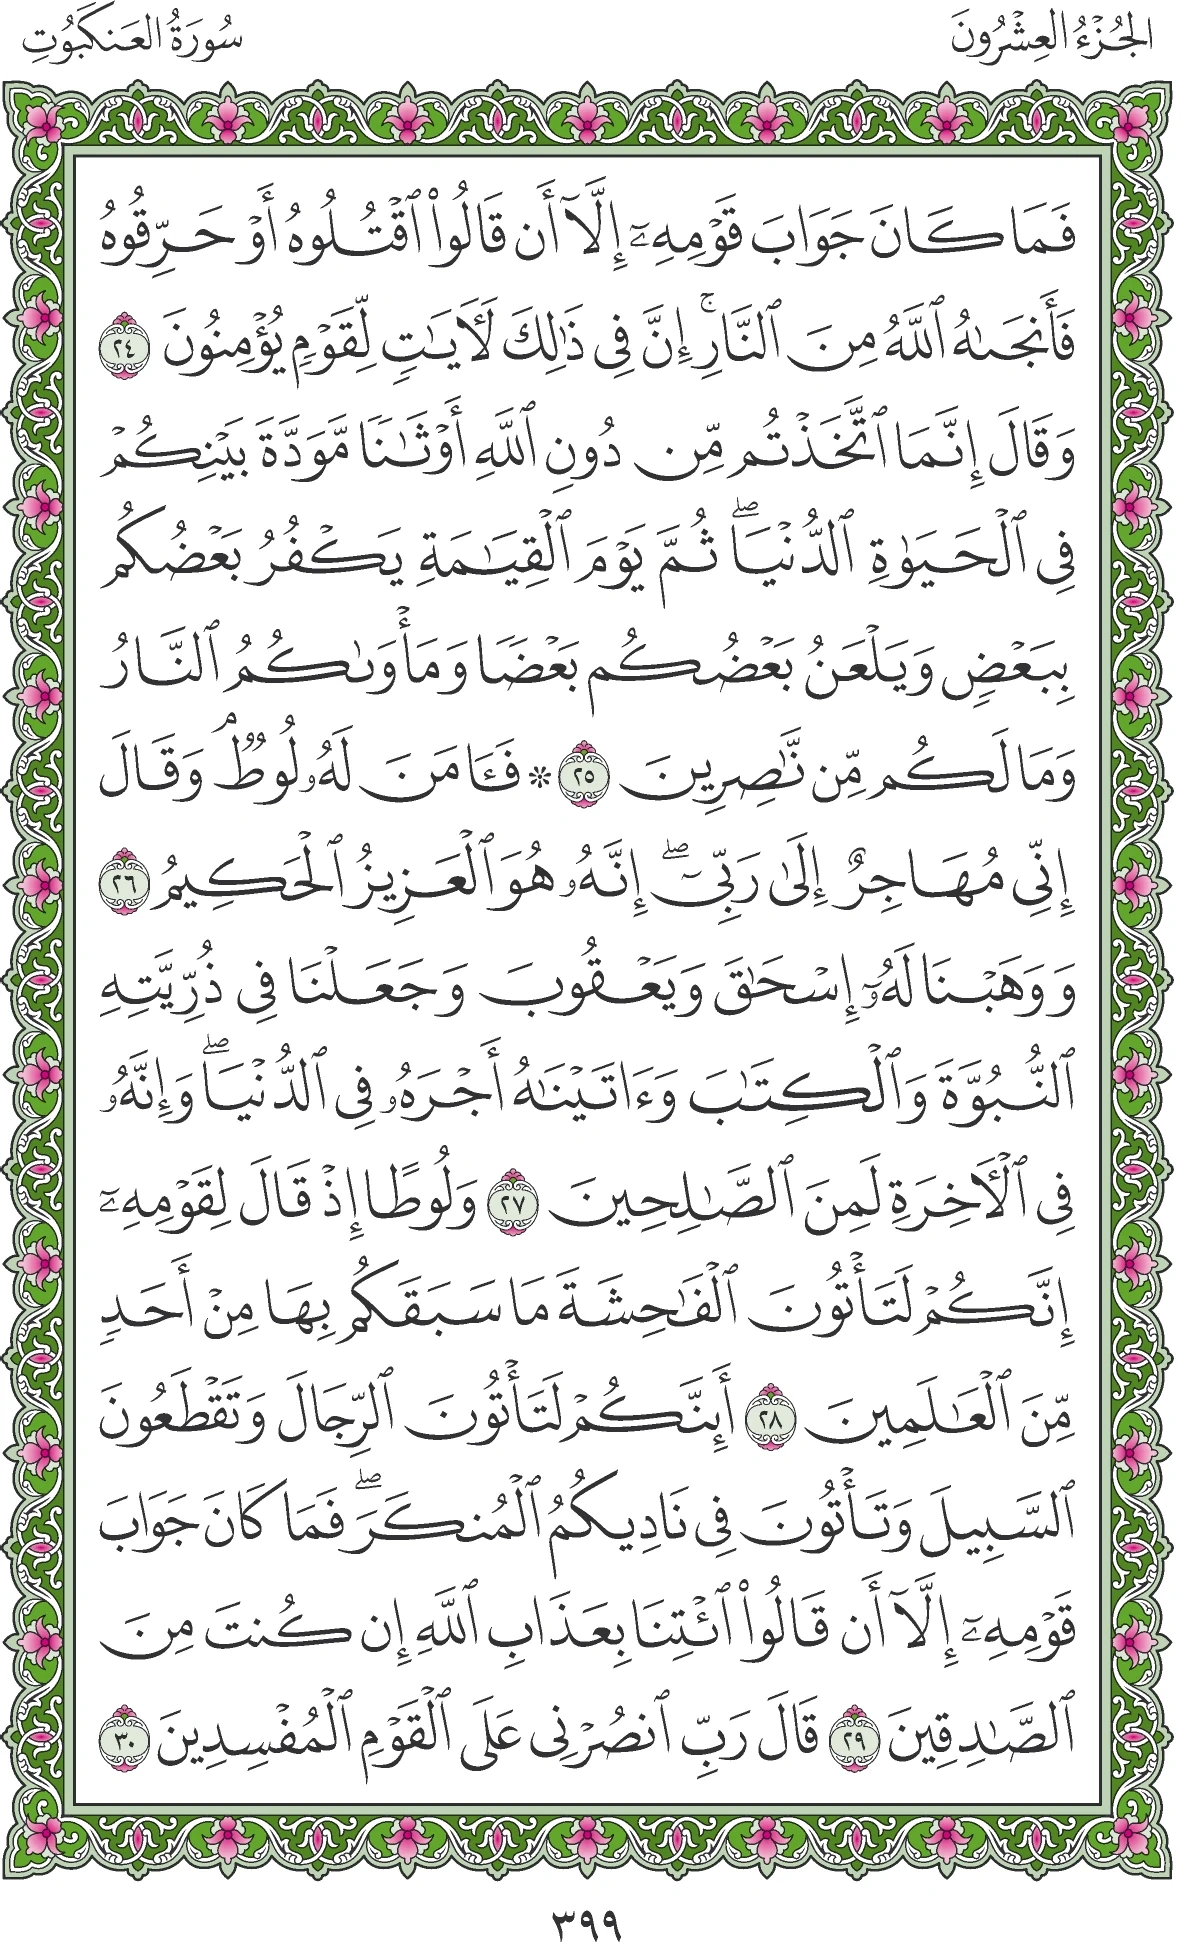 الجُزْءُ العِشْرُونَ
سُورَةُ العَنكَبُوتِ
فَمَا كَانَ جَوَابَ قَوْمِهِۦٓ إِلَّآ أَن قَالُوا۟ ٱقْتُلُوهُ أَوْ حَرِّقُوهُ
فَأَنجَىٰهُ ٱللَّهُ مِنَ ٱلنَّارِۚ إِنَّ فِى ذَٰلِكَ لَـَٔايَـٰتٍ لِّقَوْمٍ يُؤْمِنُونَ ٢٤
وَقَالَ إِنَّمَا ٱتَّخَذْتُم مِّن دُونِ ٱللَّهِ أَوْثَـٰنًا مَّوَدَّةَ بَيْنِكُمْ
فِى ٱلْحَيَوٰةِ ٱلدُّنْيَاۖ ثُمَّ يَوْمَ ٱلْقِيَـٰمَةِ يَكْفُرُ بَعْضُكُم
بِبَعْضٍ وَيَلْعَنُ بَعْضُكُم بَعْضًا وَمَأْوَىٰكُمُ ٱلنَّارُ
وَمَا لَكُم مِّن نَّـٰصِرِينَ ٢٥ ۞ فَـَٔامَنَ لَهُۥ لُوطٌۘ وَقَالَ
إِنِّى مُهَاجِرٌ إِلَىٰ رَبِّىٓۖ إِنَّهُۥ هُوَ ٱلْعَزِيزُ ٱلْحَكِيمُ ٢٦
وَوَهَبْنَا لَهُۥٓ إِسْحَـٰقَ وَيَعْقُوبَ وَجَعَلْنَا فِى ذُرِّيَّتِهِ
ٱلنُّبُوَّةَ وَٱلْكِتَـٰبَ وَءَاتَيْنَـٰهُ أَجْرَهُۥ فِى ٱلدُّنْيَاۖ وَإِنَّهُۥ
فِى ٱلْـَٔاخِرَةِ لَمِنَ ٱلصَّـٰلِحِينَ ٢٧ وَلُوطًا إِذْ قَالَ لِقَوْمِهِۦٓ
إِنَّكُمْ لَتَأْتُونَ ٱلْفَـٰحِشَةَ مَا سَبَقَكُم بِهَا مِنْ أَحَدٍ
مِّنَ ٱلْعَـٰلَمِينَ ٢٨ أَئِنَّكُمْ لَتَأْتُونَ ٱلرِّجَالَ وَتَقْطَعُونَ
ٱلسَّبِيلَ وَتَأْتُونَ فِى نَادِيكُمُ ٱلْمُنكَرَۖ فَمَا كَانَ جَوَابَ
قَوْمِهِۦٓ إِلَّآ أَن قَالُوا۟ ٱئْتِنَا بِعَذَابِ ٱللَّهِ إِن كُنتَ مِنَ
ٱلصَّـٰدِقِينَ ٢٩ قَالَ رَبِّ ٱنصُرْنِى عَلَى ٱلْقَوْمِ ٱلْمُفْسِدِينَ ٣٠
٣٩٩